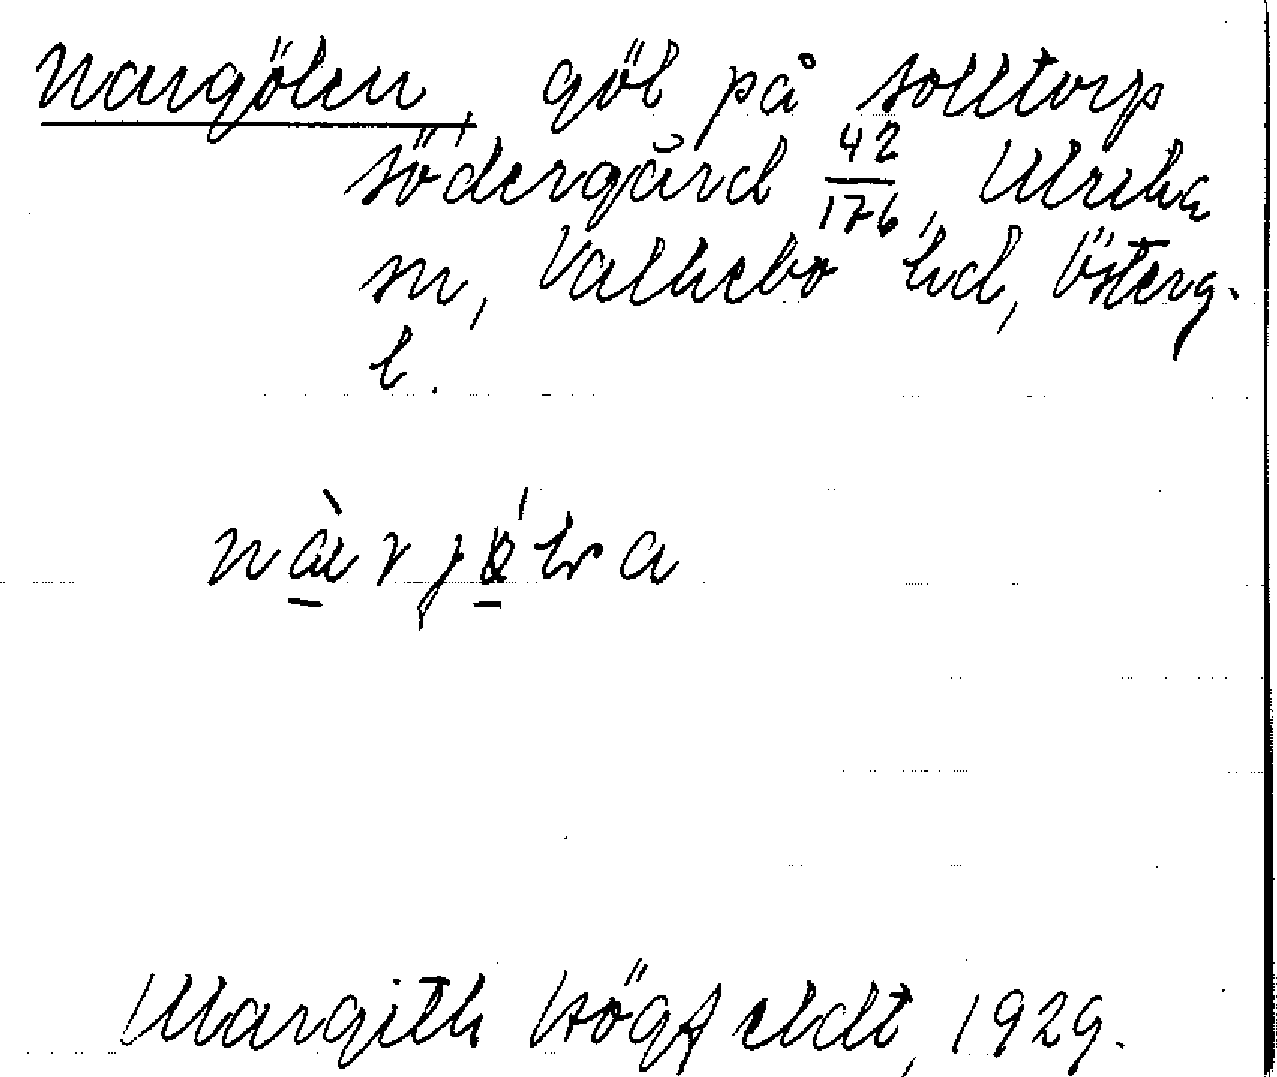 Nargölen, göl på Solltorp
Södergård 42/176, Ulrika
sn, Valkebo hd, Österg.
l.
nàrjö́lva
Margith Högfeldt, 1929.